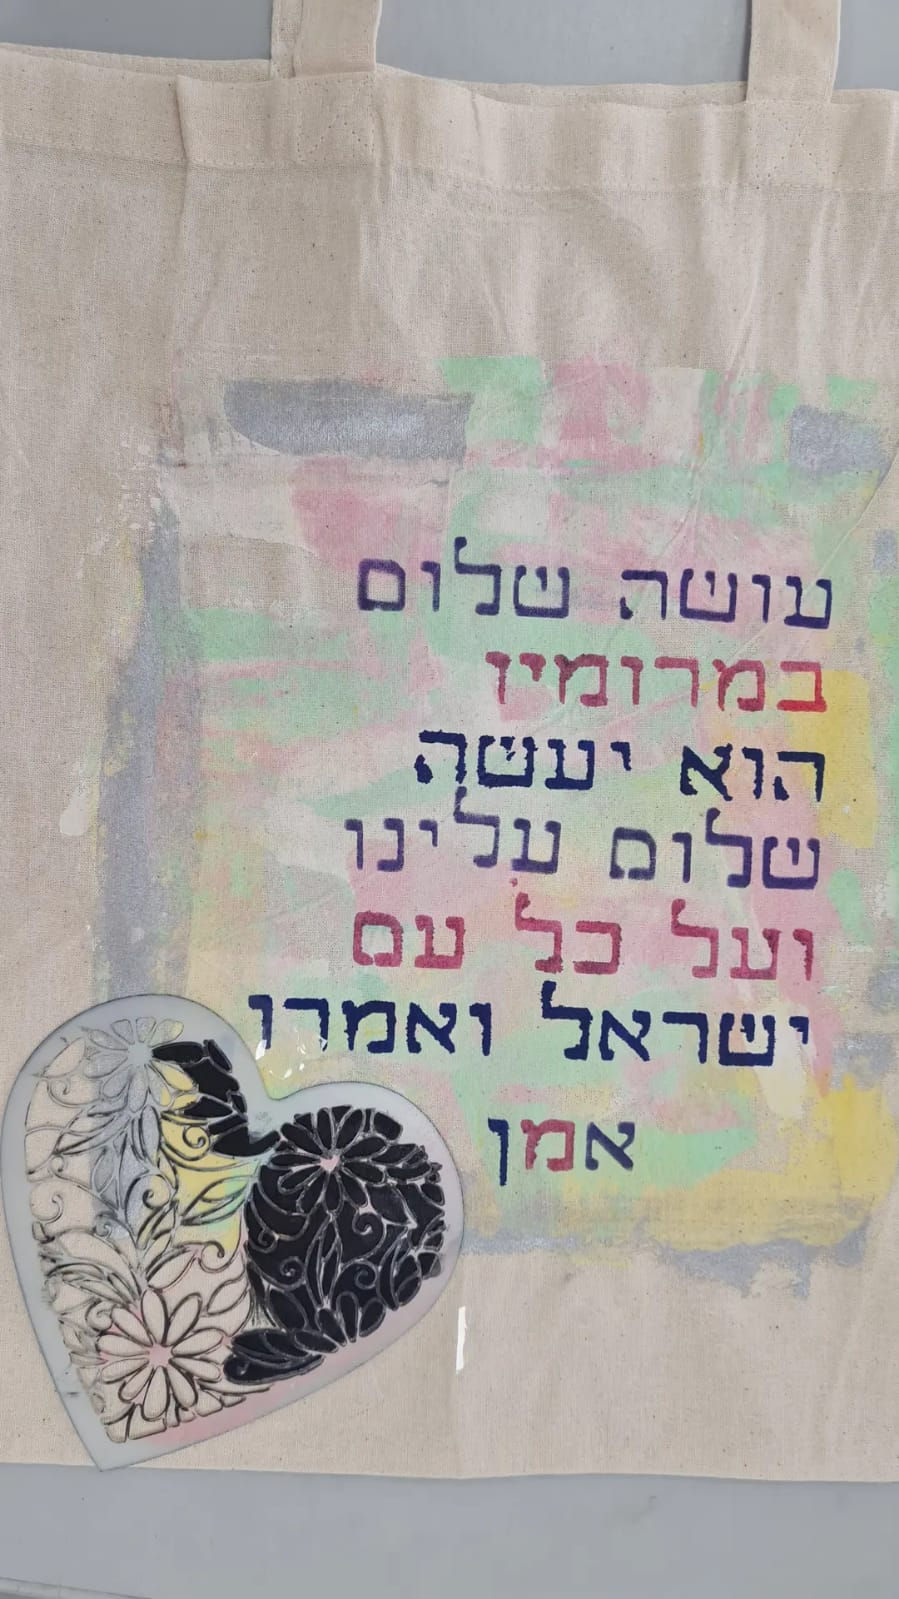 עושה שלום
במרומיו
הוא יעשה
שלום עלינו
ועל כל עם
ישראל ואמרו
אמן